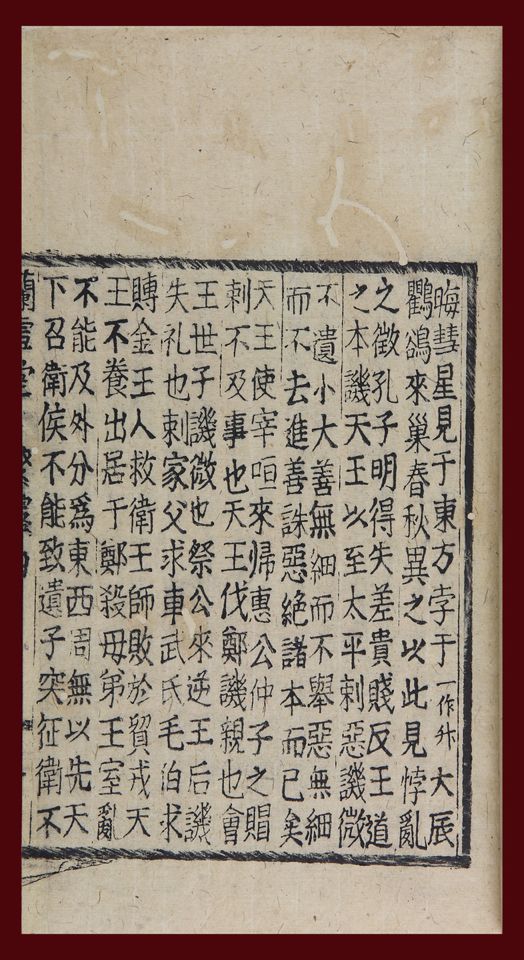 晦彗星見于東方孛于一作大辰
鸛鵒來巢春秋異之以此見悖亂
之徵孔子明得失差貴賤反王道
之本譏天王以至太平刺惡譏微
不遺小大善無細而不舉惡無細
而不去進善誅惡絶諸本而已矣
天王使宰咺來歸惠公仲子之賵
刺不及事也天王伐鄭譏親也會
王世子譏微也祭公來逆王后譏
失礼也刺家父求車武氏毛泊求
賻金王人救衛王師敗於貿戎天
王不養出居于鄭殺母弟王室亂
不能及外分爲東西周無以先天
下召衛侯不能致遺子突征衛不
蘭雪堂